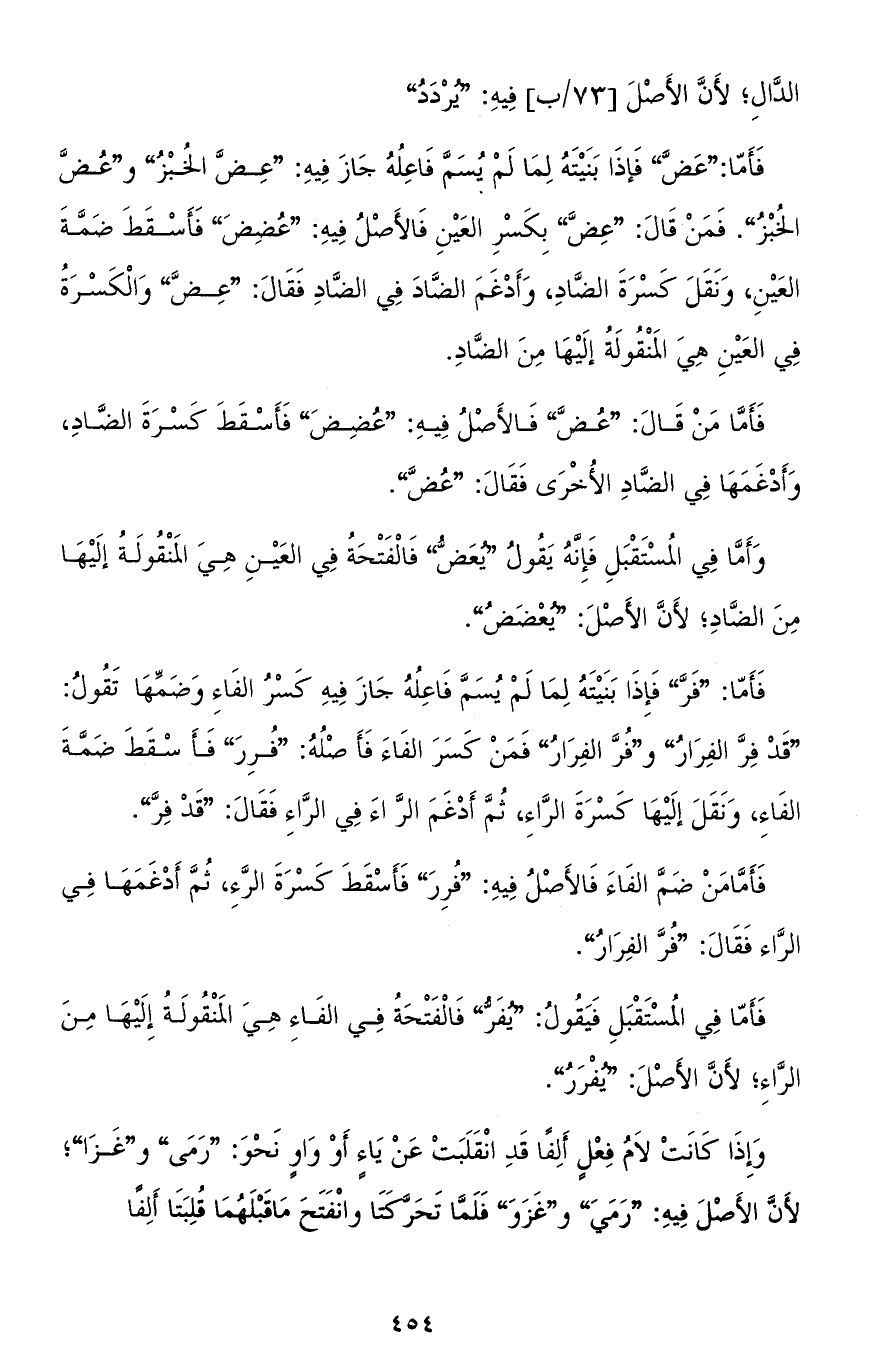 الدَّالِ؛ لأَنَّ الأَصْلَ [٧٣/ب] فِيهِ: ”يُرْدَدُ“
فَأَمّا:”عَضَّ“ فَإِذَا بَنَيْتَهُ لِمَا لَمْ يُسَمَّ فَاعِلُهُ جَازَ فِيهِ: ”عِـضَّ الخُبْزُ“ و”عُـضَّ
الخُبْزُ“. فَمَنْ قَالَ: ”عِضَّ“ بِكَسْرِ العَيْنِ فَالأَصْلُ فِيهِ: ”عُضِضَ“ فَأَسْـقَطَ ضَمَّـةَ
العَيْنِ، وَنَقَلَ كَسْرَةَ الضَّادِ، وَأَدْغَمَ الضَّادَ فِي الضَّادِ فَقَالَ: ”عِـضَّ“ وَالْكَسْـرَةُ
فِي العَيْنِ هِيَ المَنْقُولَةُ إِلَيْهَا مِنَ الضَّادِ.
فَأَمَّا مَنْ قَـالَ: ”عُـضَّ“ فَـالأَصْلُ فِيـهِ: ”عُضِـضَ“ فَأَسْـقَطَ كَسْـرَةَ الضَّـادِ،
وَأَدْغَمَهَا فِي الضَّادِ الأُخْرَى فَقَالَ: ”عُضَّ“.
وَأَمَّا فِي المُسْتَقْبَلِ فَإِنَّهُ يَقُولُ ”يُعَضُّ“ فَالْفَتْحَةُ فِي العَيْـنِ هِـيَ المَنْقُولَـةُ إِلَيْهَـا
مِنَ الضَّادِ؛ لأَنَّ الأَصْلَ: ”يُعْضَضُ“.
فَأَمّا: ”فَرَّ“ فَإِذَا بَنَيْتَهُ لِمَا لَمْ يُسَمَّ فَاعِلُهُ جَازَ فِيهِ كَسْرُ الفَاءِ وَضَمِّهَا تَقُولُ:
”قَدْ فِرَّ الفِرَارُ“ و”فُرَّ الفِرَارُ“ فَمَنْ كَسَرَ الفَاءَ فَأَ صْلُهُ: ”فُـرِرَ“ فَـأَ سْـقَطَ ضَمَّـةَ
الفَاءِ، وَنَقَلَ إِلَيْهَا كَسْرَةَ الرَّاءِ، ثُمَّ أَدْغَمَ الرَّ اءَ فِي الرَّاءِ فَقَالَ: ”قَدْ فِرَّ“.
فَأَمَّامَنْ ضَمَّ الفَاءَ فَالأَصْلُ فِيهِ: ”فُرِرَ“ فَأَسْقَطَ كَسْرَةَ الرَّءِ، ثُمَّ أَدْغَمَهَـا فِـي
الرَّاء فَقَالَ: ”فُرَّ الفِرَارُ“.
فَأَمّا فِي المُسْتَقْبَلِ فَيَقُولُ: ”يُفَرُّ“ فَالْفَتْحَةُ فِـي الفَـاءِ هِـيَ المَنْقُولَـةُ إِلَيْهَـا مِـنَ
الرَّاءِ؛ لأَنَّ الأَصْلَ: ”يُفْرَرُ“.
وَإِذَا كَانَتْ لاَمُ فِعْلٍ أَلِفًا قَدِ انْقَلَبَتْ عَنْ يَاءٍ أَوْ وَاوٍ نَحْوَ: ”رَمَى“ و”غَـزَا“؛
لأَنَّ الأَصْلَ فِيهِ: ”رَمَيَ“ و”غَزَوَ“ فَلَمَّا تَحَرَّكَتَا وانْفَتَحَ مَاقَبْلَهُمَا قُلِبَتَا أَلِفًا
٤٥٤